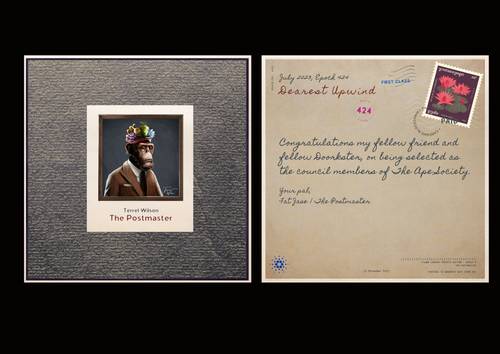 Terret Wilson
The Postmaster
July 2023, Epoch 424
FIRST CLASS
Dearest Upwind
424
PAID
Congratulations my fellow friend and
fellow Doorkster, on being selected as
the council members of The Ape Society.
Your pah,
Fat Jase / The Postmaster